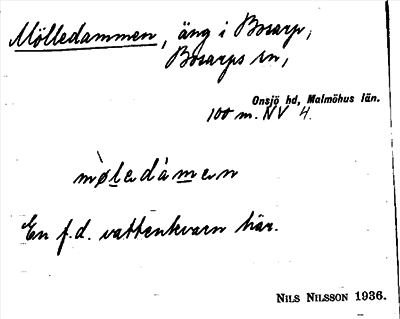 Mölledammen, äng i Bosarp,
Bosarps sn,
Onsjö hd, Malmöhus län.
100 m. NV 4.
mø̀lədàmən
En f.d. vattenkvarn här.
NILS NILSSON 1936.